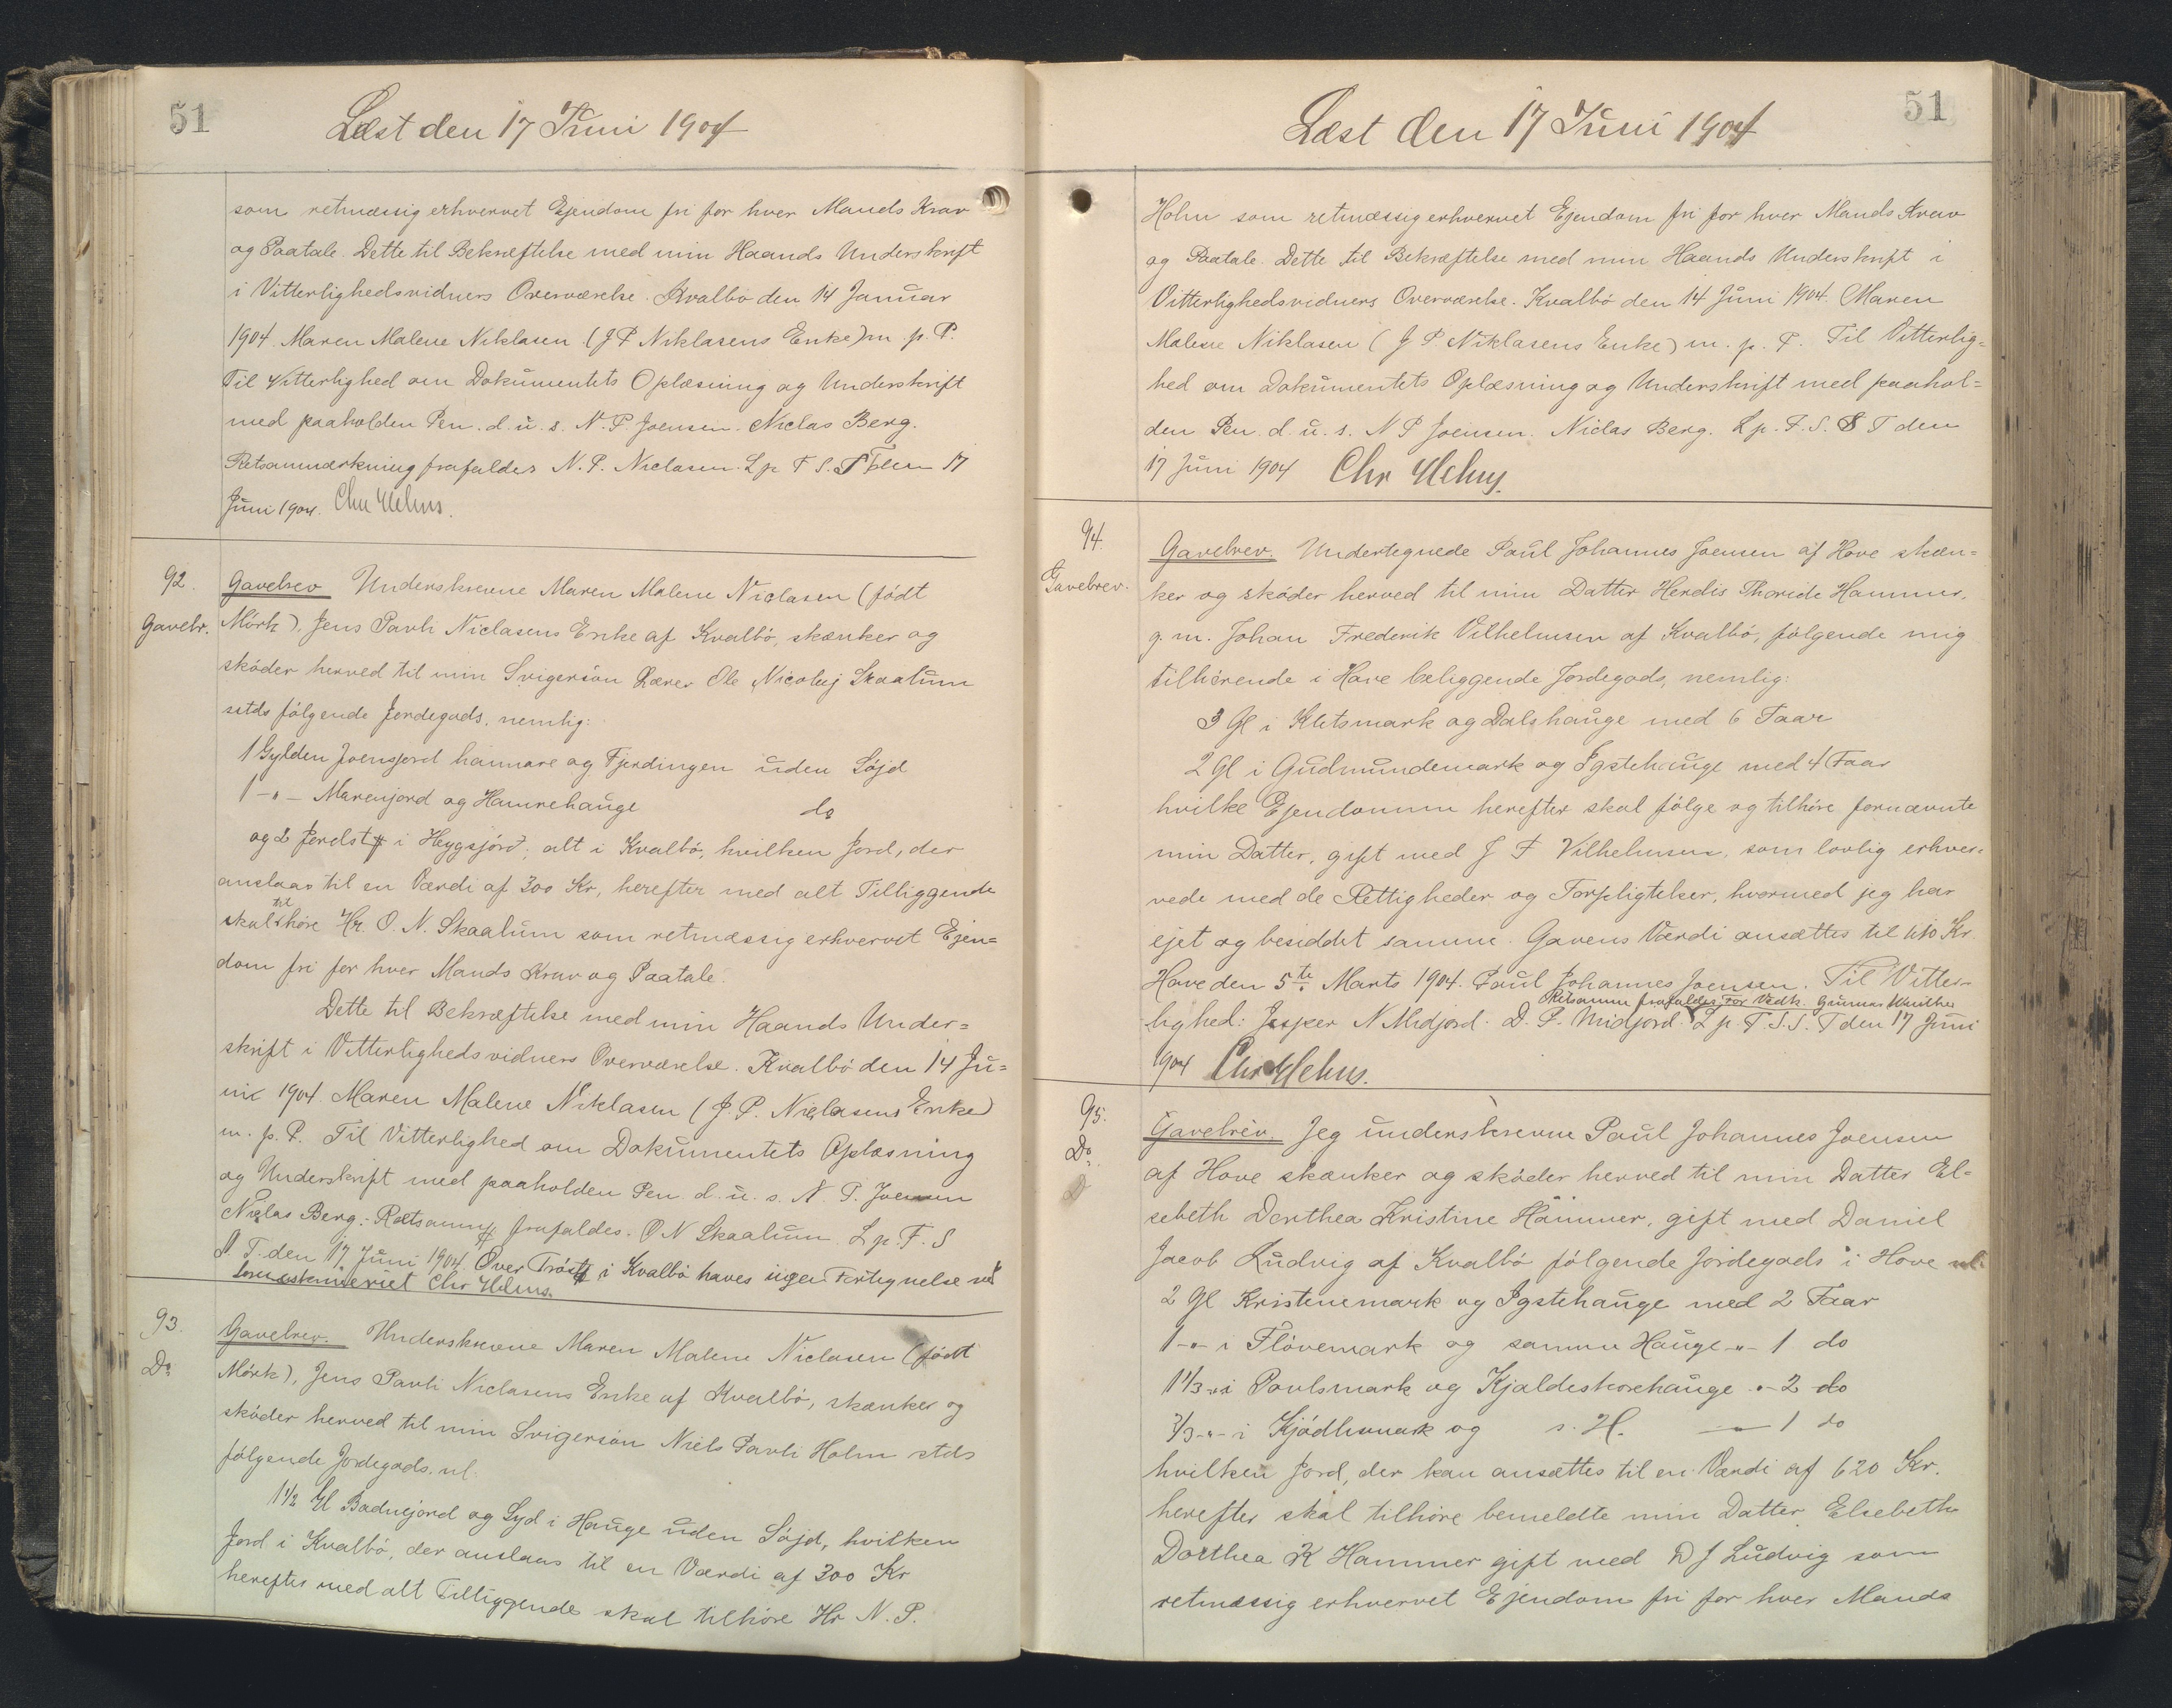 51
Læst den 17 Juni 1904
som retmæssig erhvervet Ejendom fri for hver Mands Krav
og Paatale. Dette til Bekræftelse med min Haands Underskrift
i Vitterlighedsvidners Overværelse. Kvalbø den 14 Januar
1904. Maren Malene Niklasen (J P Niklasens Enke) m. p. P.
Til Vitterlighed om Dokumentets Oplæsning og Underskrift
med paaholden Pen. d. u. s. N. P Joensen. Niclas Berg.
Retsanmærkning frafaldes N. P. Niclasen. L p F S. S T den 17
Juni 1904. Chr Hehns.
92.
Gavebr.
Gavebrev Underskrevne Maren Malene Niclasen (født
Mörk), Jens Pavli Niclasens Enke af Kvalbö, skænker og
sköder herved til min Svigersön Lærer Ole Nicolaj Skaalum
sstds fölgende Jordegods, nemlig:
1 Gylden Joensjord hannare og Fjerdingen uden Löjd
1 -"- Marenjord og Hamrehauge do
og 2 Jordst i Heygsjörd, alt i Kvalbö, hvilken Jord, der
anslaas til en Værdi af 300 Kr, herefter med alt Tilliggende
skal tilhöre Hr. O. N. Skaalum som retmæssig erhvervet Ejen=
dom fri for hver Mands Krav og Paatale.
Dette til Bekræftelse med min Haands Under=
skrift i Vitterlighedsvidners Overværelse. Kvalbö den 14 Ju=
ni 1904. Maren Malene Niklasen (J. P. Niclasens Enke)
m. p. P. Til Vitterlighed om Dokumentets Oplæsning
og Underskrift med paaholden Pen d. u. s. N. P. Joensen
Niclas Berg. - Retsanm frafaldes. O N Skaalum. L p. F. S
S. T. den 17 Juni 1904. Over i Kvalbö haves ingen Fortegnelse ved
Sorenskriveriet Chr Hehns.
93.
Do
Gavebrev. Underskrevne Maren Malene Niclasen (född
Mörk), Jens Pavli Niclasens Enke af Kvalbö, skænker og
sköder herved til min Svigersön Niels Pavli Holm stds
fölgende Jordegods. nl:
1 1/2 Gl Badnejord og Syd i Hauge uden Löjd, hvilken
Jord i Kvalbö, der anslaas til en Værdi af 300 Kr
herefter med alt Tilliggende skal tilhöre Hr N. P.
51
Læst den 17 Juni 1904
Holm som retmæssig erhvervet Ejendom fri for hver Mands Krav
og Paatale. Dette til Bekræftelse med min Haands Underskrift i
Vitterlighedsvidners Overværelse. Kvalbö den 14 Juni 1904. Maren
Malene Niklasen (J P Niklasens Enke) m. p. P. Til Vitterlig=
hed om Dokumentets Oplæsning og Underskrift med paahol=
den Pen d. u. s. N P Joensen. Niclas Berg. L p. F. S. S T den
17 Juni 1904 Chr Hehns.
94.
Gavebrev.
Gavebrev. Undertegnede Poul Johannes Joensen af Hove skæn=
ker og sköder herved til min Datter Herdis Thoride Hammer,
g. m. Johan Frederik Vilhelmsen af Kvalbö, fölgende mig
tilhörende i Hove beliggende Jordegods, nemlig:
3 Gl i Kletsmark og Dalshauge med 6 Faar
2 Gl i Gudmundemark og Igstehauge med 4 Faar
hvilke Ejendomme herefter skal fölge og tilhöre fornævnte
min Datter, gift med J F Vilhelmsen, som lovlig erhver=
vede med de Rettigheder og Forpligtelser, hvormed jeg har
ejet og besiddet samme. Gavens Værdi ansættes til Kr.
Hove den 5te Marts 1904. Poul Johannes Joensen. Til Vitter=
Retsanm frafaldes for Vedk. Gunnar Winther
lighed: Jesper N Midjord. D. P. Midjord. L p. F. S. S. T den 17 Juni
1904 Chr Hehns.
95.
Do
Gavebrev. Jeg underskrevne Poul Johannes Joensen
af Hove skænker og sköder herved til min Datter El=
sebeth Dorthea Kristine Hammer, gift med Daniel
Jacob Ludvig af Kvalbö fölgende Jordegods i Hove nl.
2 Gl Kristinemark og Igstehauge med 2 Faar
1 -"- i Flövemark og samme Hauge -"- 1 do
1 1/3 -"- i Povlsmark og Kjaldeskorehauge -"- 2 do
2/3 -"- i og s. H. -"- 1 do
hvilken Jord, der kan ansættes til en Værdi af 620 Kr.
herefter skal tilhöre bemeldte min Datter Elsebeth
Dorthea K Hammer gift med D J Ludvig som
retmæssig erhvervet Ejendom fri for hver Mands